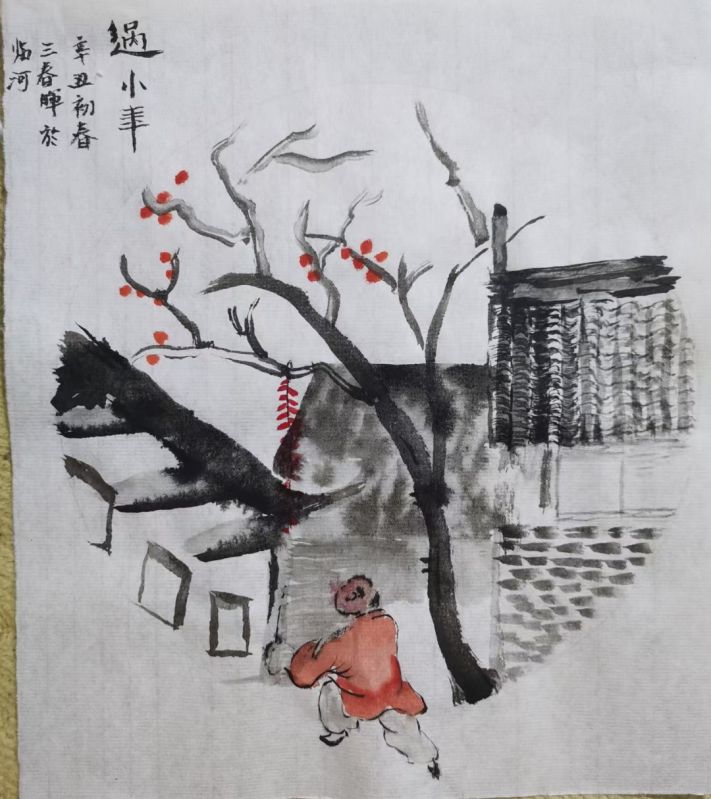 過小年
辛丑初春
三春暉於
临河